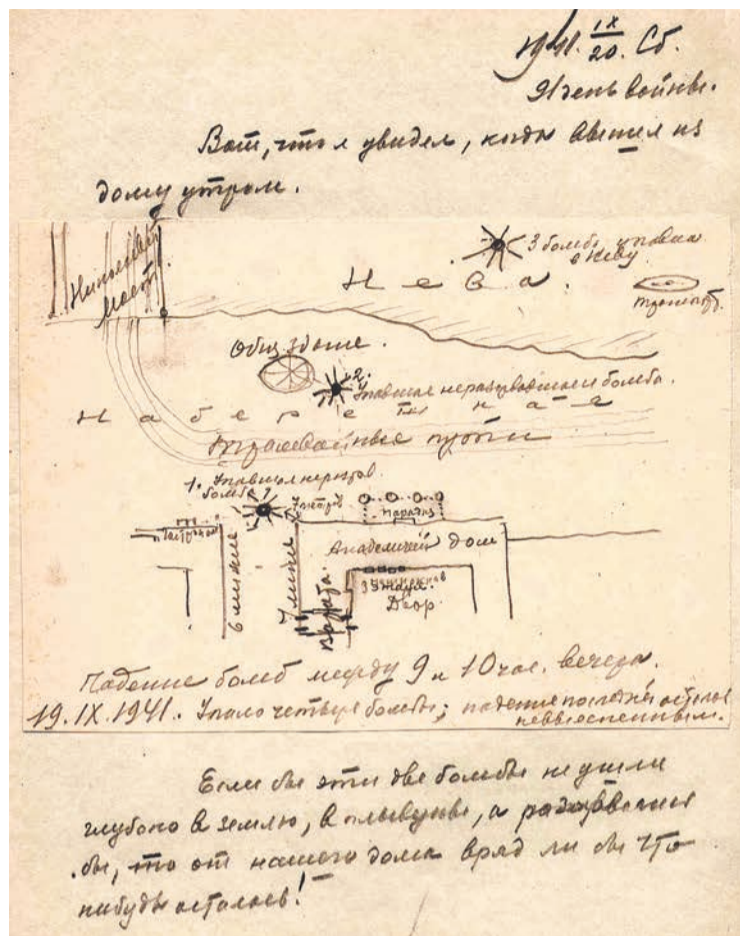 1941. IX/20. Сб.
91 день войны.
Вот, что я увидел, когда вышел из
дому утром.
Николаевс. мост.
3 бомба упавшая в Неву.
Нева.
транспорт.
Общ. здание.
2.
Упавшая неразорвавшаяся бомба.
Набережная
Трамвайные пути
1. Упавшая неразор. бомба
7 метров
парадн.
6 линия
7 линия
Ворота.
Академический дом
3 этажа.
Двор.
Падение бомб между 9 и 10 час. вечера.
19.IX.1941. Упало четыре бомбы; падение последней осталось
невыясненным.
Если бы эти две бомбы не ушли
глубоко в землю, в плывуны, а разорвались
бы, то от нашего дома вряд ли бы что
нибудь осталось!